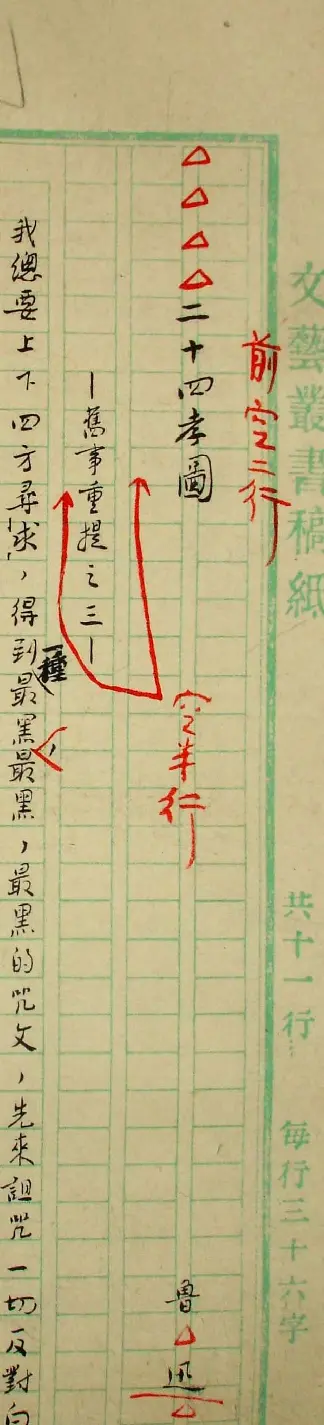 文藝叢書稿紙 共十一行 每行三十六字
前空二行
二十四孝圖 魯迅
空半行
—舊事重提之三—
我總要上下四方尋求，得到一種最黑，最黑，最黑的咒文，先來詛咒一切反對白